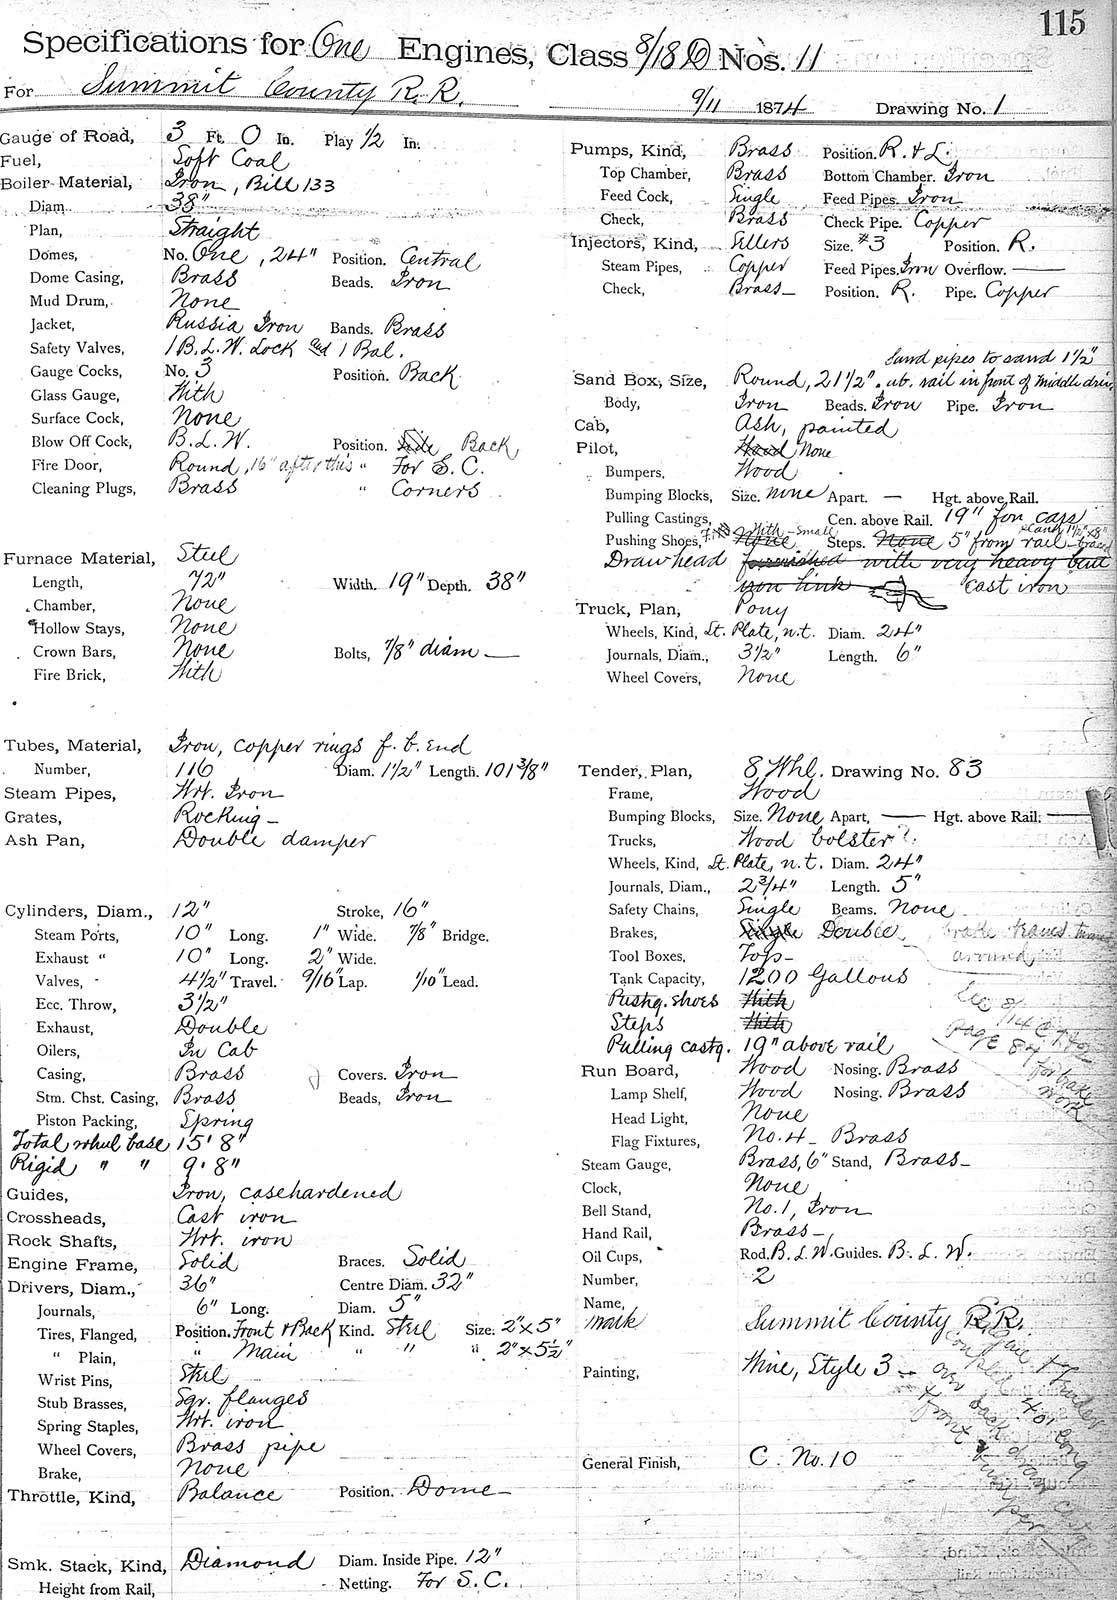 115
Specifications for One Engines, Class 8/18 D Nos. 11
For Summit County R.R. 9/11 1874 Drawing No. 1
Gauge of Road, 3 Ft. 0 In. Play 1/2 In.
Fuel, Soft Coal
Boiler Material, Iron, Bill 133
Diam. 38"
Plan, Straight
Domes, No. One, 24" Position. Central
Dome Casing, Brass Beads. Iron
Mud Drum, None
Jacket, Russia Iron Bands. Brass
Safety Valves, 1 B.L.W. Lock and 1 Bal.
Gauge Cocks, No. 3 Position. Back
Glass Gauge, With
Surface Cock, None
Blow Off Cock, B.L.W. Position. Side Back
Fire Door, Round, 16" after this " For S.C.
Cleaning Plugs, Brass " Corners
Furnace Material, Steel
Length, 72" Width. 19" Depth. 38"
Chamber, None
Hollow Stays, None
Crown Bars, None Bolts, 7/8" diam
Fire Brick, With
Tubes, Material, Iron, copper rings f. b. end
Number, 116 Diam. 1 1/2" Length. 101 3/8"
Steam Pipes, Wrt. Iron
Grates, Rocking
Ash Pan, Double damper
Cylinders, Diam., 12" Stroke, 16"
Steam Ports, 10" Long. 1" Wide. 7/8" Bridge.
Exhaust " 10" Long. 2" Wide.
Valves, 4 1/2" Travel. 9/16" Lap. 1/10" Lead.
Ecc. Throw, 3 1/2"
Exhaust, Double
Oilers, In Cab
Casing, Brass Covers. Iron
Stm. Chst. Casing, Brass Beads, Iron
Piston Packing, Spring
Total wheel base 15' 8"
Rigid " " 9' 8"
Guides, Iron, casehardened
Crossheads, Cast iron
Rock Shafts, Wrt. iron
Engine Frame, Solid Braces. Solid
Drivers, Diam., 36" Centre Diam. 32"
Journals, 6" Long. Diam. 5"
Tires, Flanged, Position. Front & Back Kind. Steel Size. 2" x 5"
" Plain, " Main " " " 2" x 5 1/2"
Wrist Pins, Steel
Stub Brasses, Sqr. flanges
Spring Staples, Wrt. iron
Wheel Covers, Brass pipe
Brake, None
Throttle, Kind, Balance Position. Dome
Smk. Stack, Kind, Diamond Diam. Inside Pipe. 12"
Height from Rail, Netting. For S.C.
Pumps, Kind, Brass Position. R. & L.
Top Chamber, Brass Bottom Chamber. Iron
Feed Cock, Single Feed Pipes. Iron
Check, Brass Check Pipe. Copper
Injectors, Kind, Sellers Size. #3 Position. R.
Steam Pipes, Copper Feed Pipes. Iron Overflow. —
Check, Brass Position. R. Pipe. Copper
Sand pipes to sand 1 1/2"
Sand Box, Size, Round, 21 1/2" ab. rail in front of middle
Body, Iron Beads. Iron Pipe. Iron
Cab, Ash, painted
Pilot, Wood None
Bumpers. Wood
Bumping Blocks, Size. none Apart. — Hgt. above Rail.
Pulling Castings, Cen. above Rail. 19" for cars
Pushing Shoes, None With small Steps. None 5" from rail
Drawhead furnished with very heavy
iron link cast iron
Truck, Plan, Pony
Wheels, Kind, St. Plate, n.t. Diam. 24"
Journals, Diam., 3 1/2" Length. 6"
Wheel Covers, None
Tender, Plan, 8 Whl. Drawing No. 83
Frame, Wood
Bumping Blocks, Size. None Apart, — Hgt. above Rail: —
Trucks, Wood bolster
Wheels, Kind, St. Plate, n.t. Diam. 24"
Journals, Diam., 2 3/4" Length. 5"
Safety Chains, Single Beams. None
Brakes, Single Double brake
Tool Boxes, Top around
Tank Capacity, 1200 Gallons
Pushg. shoes With
Steps With
Pulling castg. 19" above rail
page 84
for brake
work
Run Board, Wood Nosing. Brass
Lamp Shelf, Wood Nosing. Brass
Head Light, None
Flag Fixtures, No. 4 Brass
Steam Gauge, Brass, 6" Stand, Brass
Clock, None
Bell Stand, No. 1, Iron
Hand Rail, Brass
Oil Cups, Rod. B.L.W. Guides. B.L.W.
Number, 2
Name,
mark Summit County R.R.
Painting, Wine, Style 3
General Finish, C. No. 10